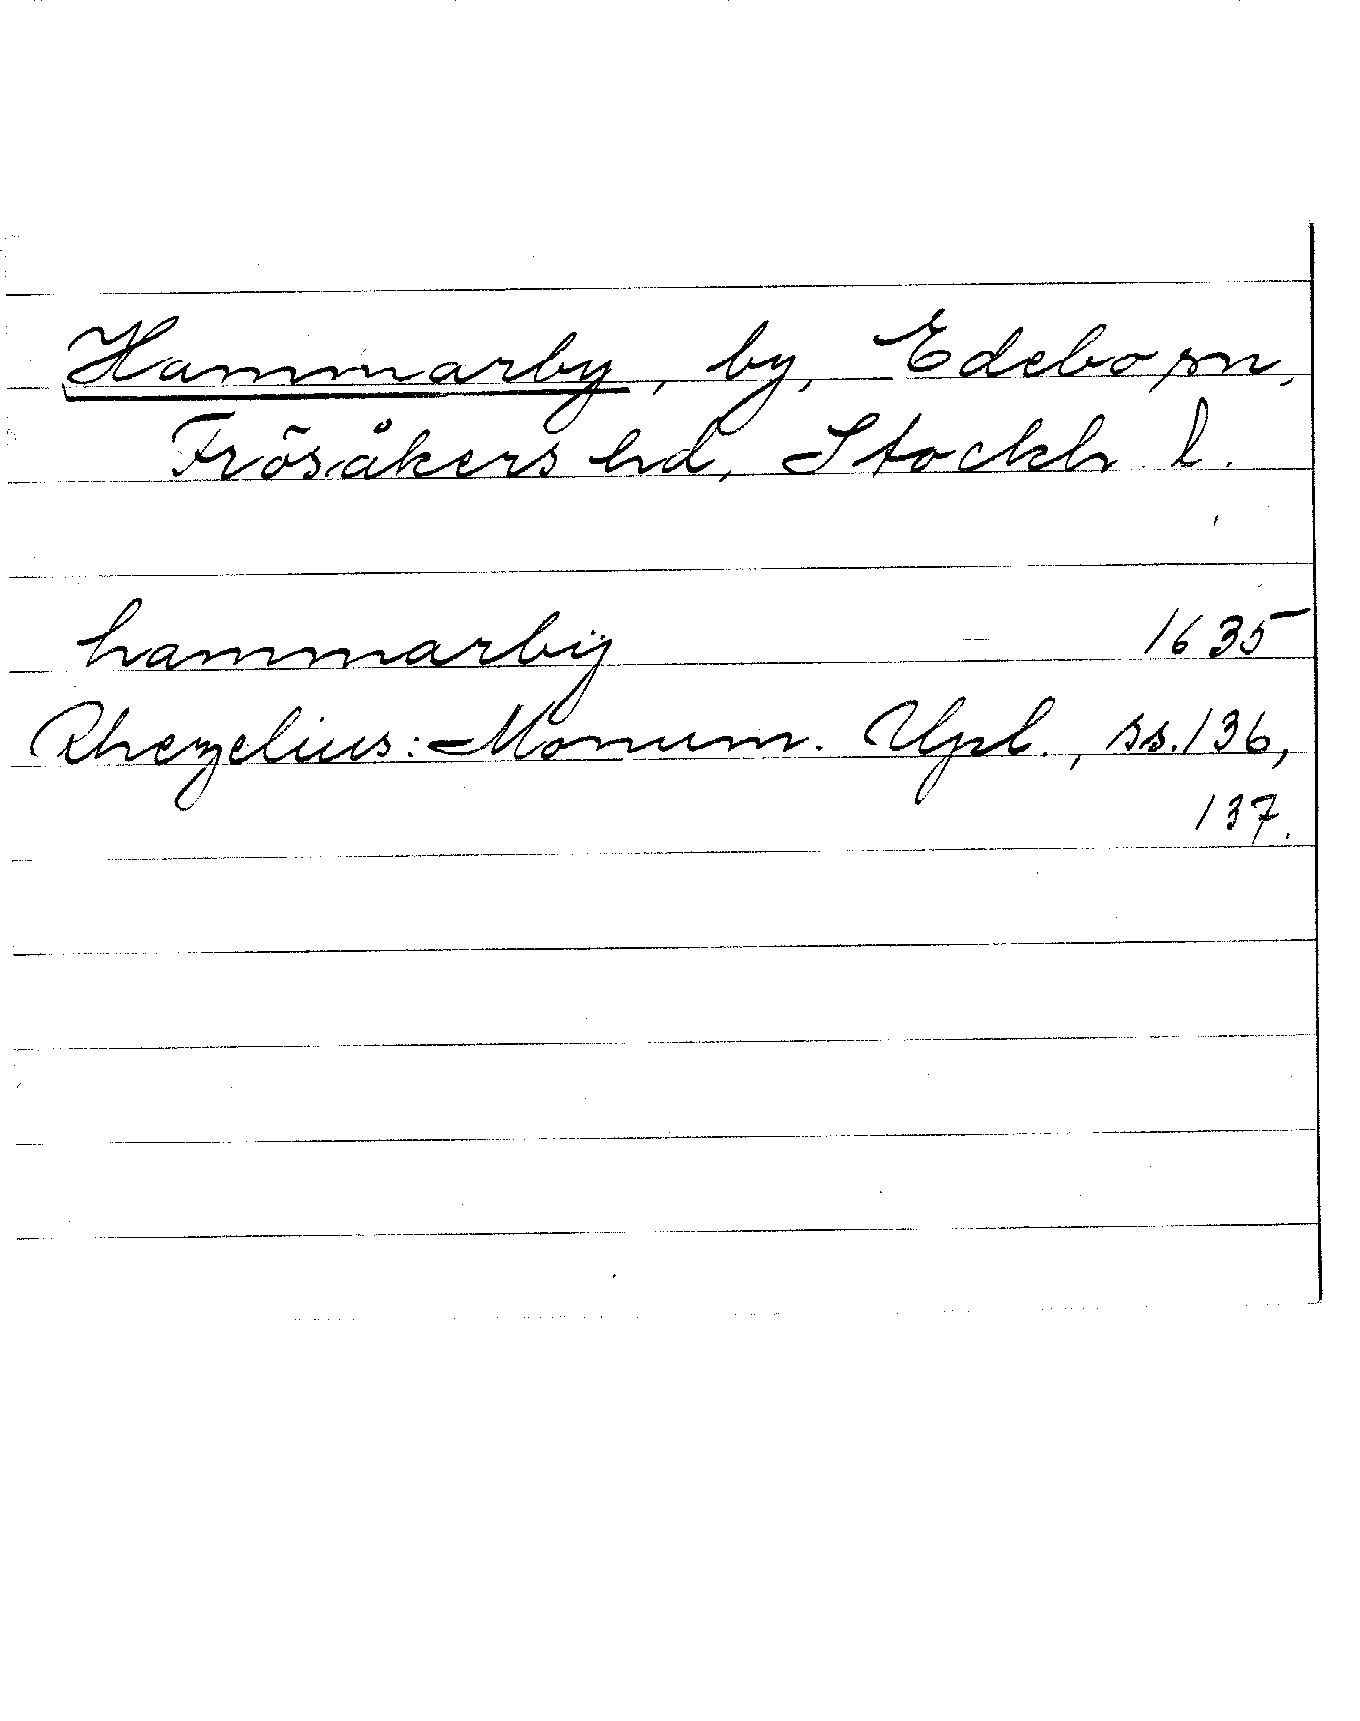 Hammarby, by, Edebo sn,
Frösåkers hd, Stockh. l.
hammarbÿ 1635
Rhezelius: Monum. Upl., ss. 136,
137.